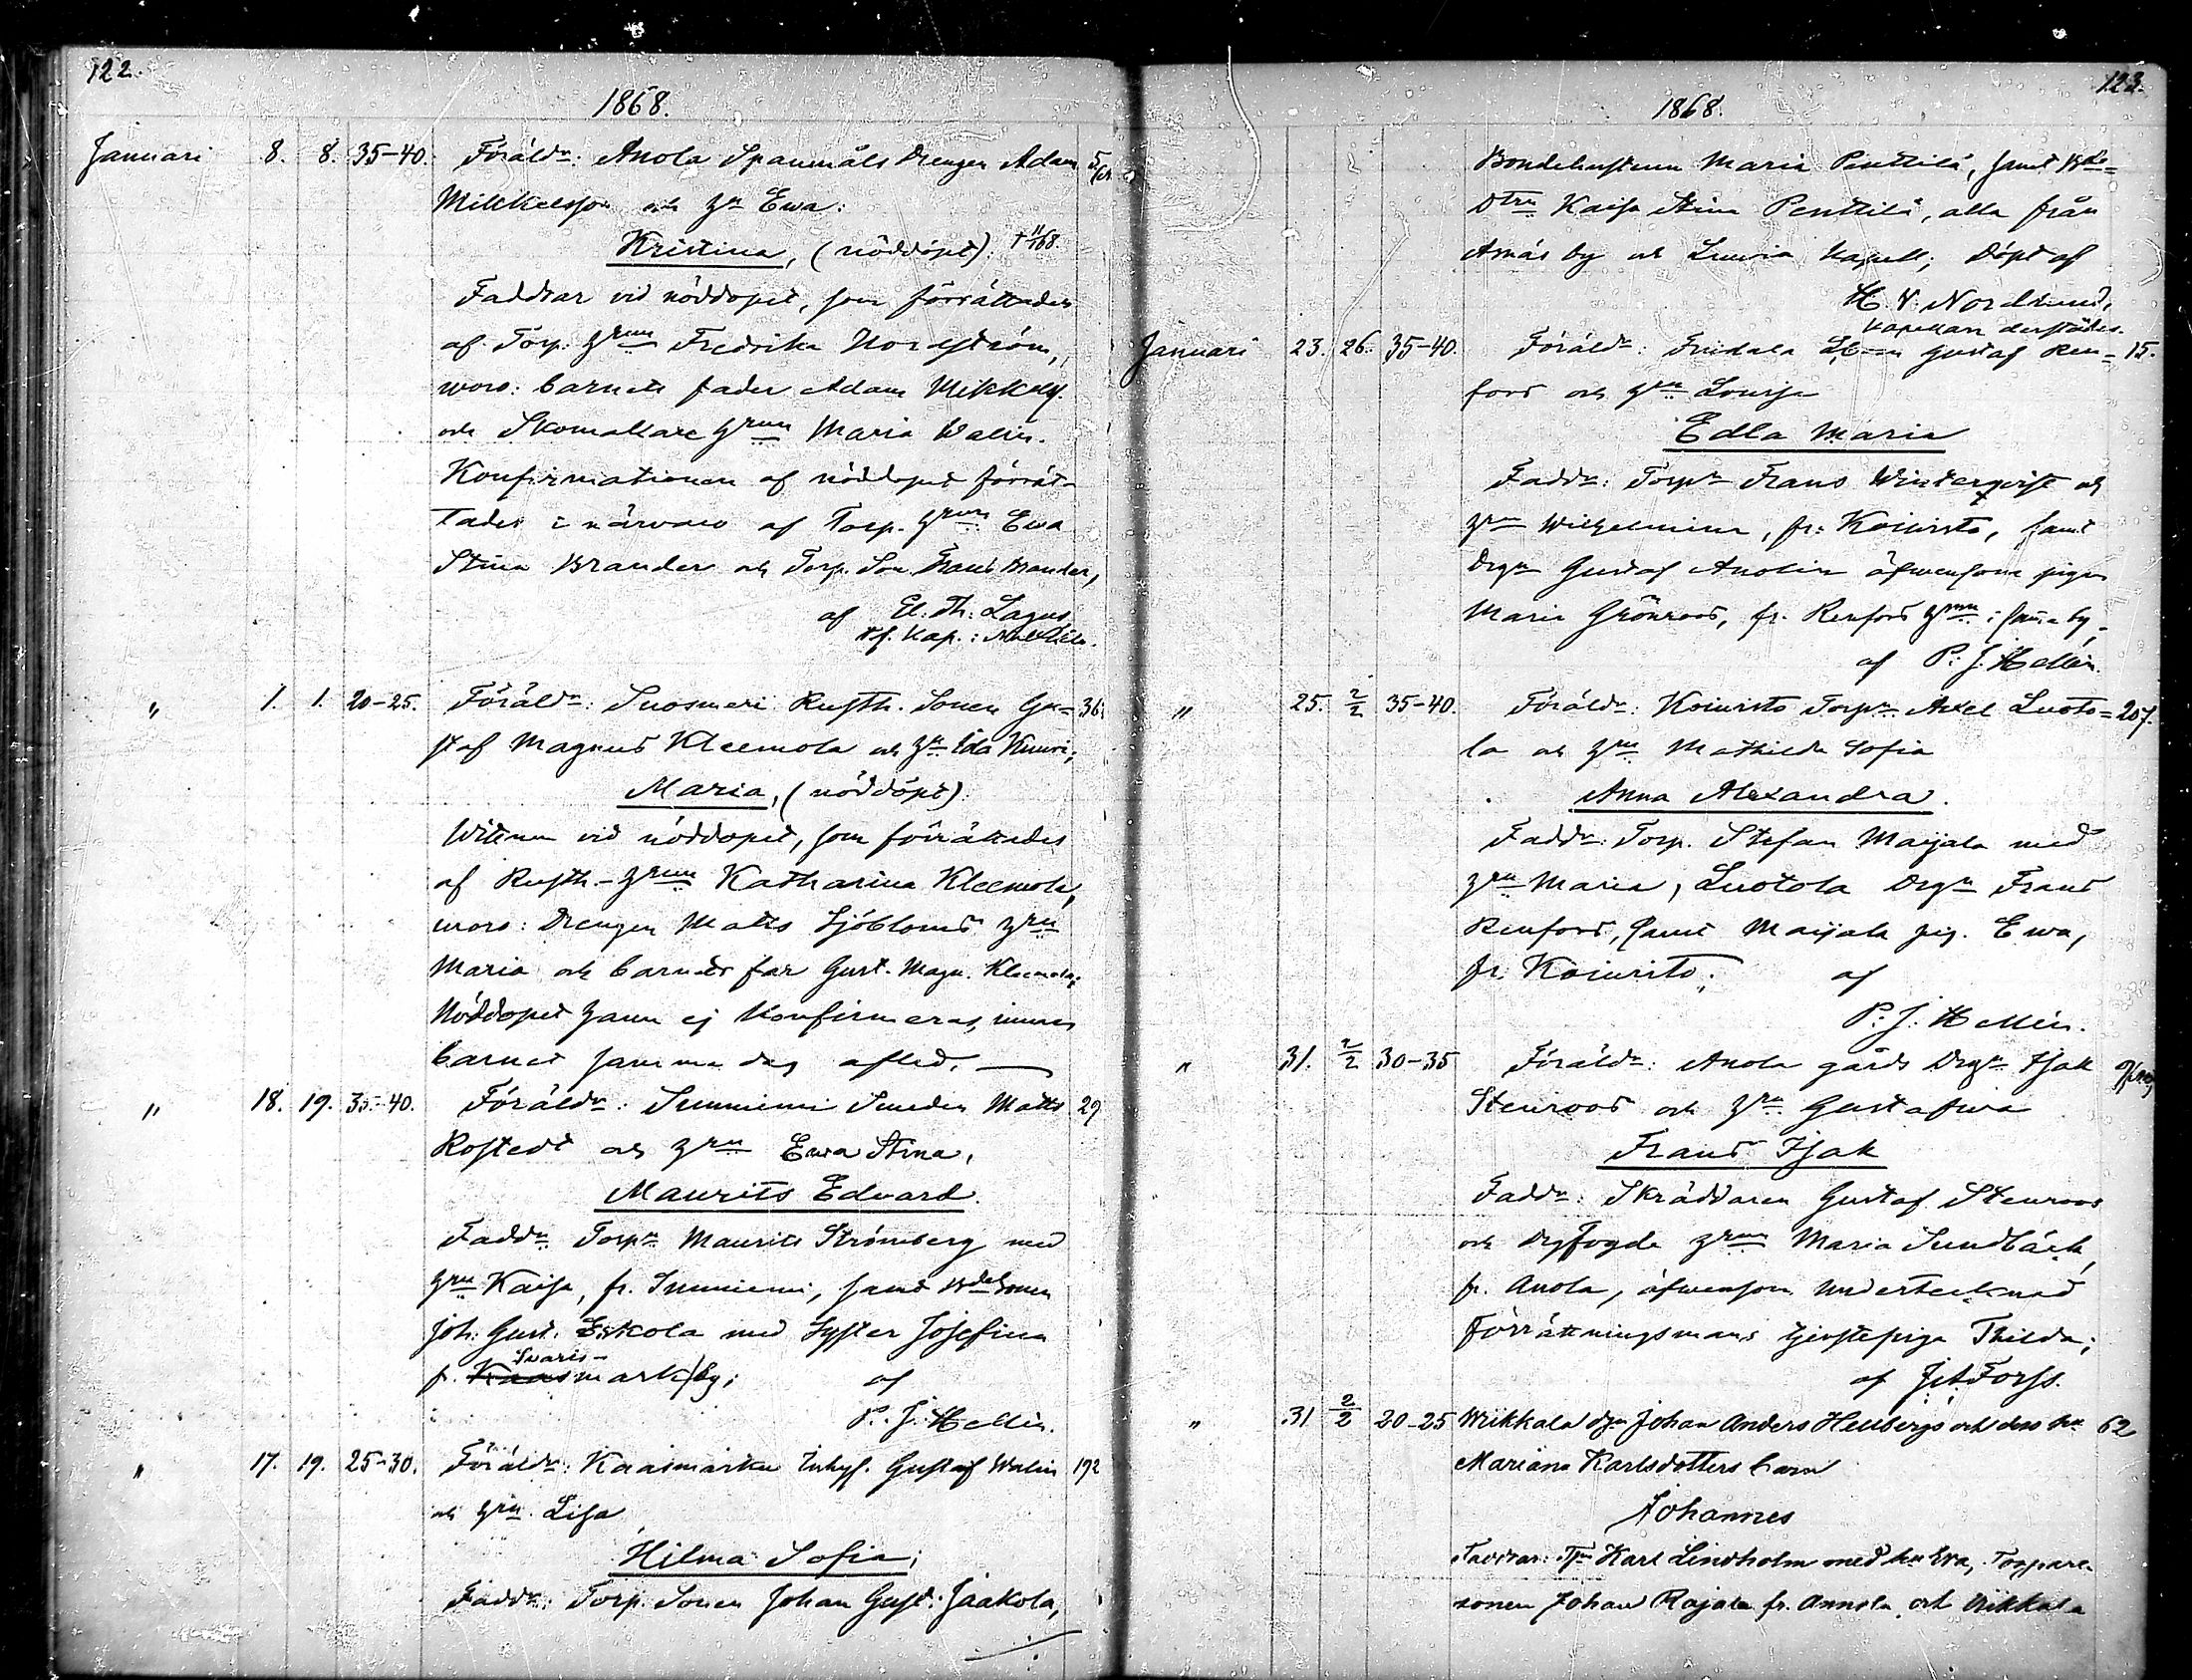 122.
1868.
Januari 8. 8. 35-40. Föräldr: Anola Spanmåls Drengen Adam
Mikkelsson och hr Ewa:
Kristina, (nöddöpt).
Faddrar vid nöddopet, som förrättades
af Torp. hrun Fredrika Nordström,
woro: barnets fader Adam Mikkels.
och Skomakare hrun Maria Walin.
Konfirmationen af nöddopet förrät-
tades i närvaro af Torp. hrun Ewa
Stina Brander och Torp. Son Frans Brander,
af El. Th. Lagus,
tf. Kap. i
" 1. 1. 20-25. Föräldr: Suosmeri Rusth. Sonen Gu= 36.
staf Magnus Kleemola och hr Ida Kuuri;
Maria, (nöddöpt).
Wittnen vid nöddopet, som förrättades
af Rusth-hrun Katharina Kleemola,
woro: Drengen Matts Sjöbloms hru
Maria och barnets far Gust. Magn. Kleemola;
Nöddopet hann ej konfirmeras, innan
barnet samma dag afled. —
" 18. 19. 35-40. Föräldr: Sunniemi Smeden Matts 29
Rostedt och hru Ewa Stina,
Maurits Edvard.
Faddr: Torpr Maurits Strömberg med
hru Kaisa, fr. Sunniemi, samt Bdesonen
Joh. Gust. Eskola med Syster Josefina
Suaris-
f. Kaasmark by; af
P. J. Hellén.
" 17. 19. 25-30. Föräldr: Kaasmarku Inhys. Gustaf Walin 192
och hru Lisa
Hilma Sofia;
Faddr: Torp. Sonen Johan Gust. Jaakola,
123.
1868.
Bondehustrun Maria Penttilä, samt Bde=
dtrn Kaisa Stina Penttilä, alla från
Anäs by och Luvia Kapell; döpt af
H. V. Nordlund,
Kapellan derstädes.
Januari 23. 26. 35-40. Föräldr: Gustaf Ren= 15.
fors och hru Lovisa
Edla Maria
Faddr: Torpr Frans Winterqvist och
hru Wilhelmina, fr. Koivisto, samt
Drgn Gustaf Anolin äfvensom pigan
Maria Grönroos, fr. Renfors hmn i samma by;
af P. J. Hellén.
" 25. 2/2 35-40. Föräldr: Koivisto Torpr Axel Luoto= 207.
la och hru Mathilda Sofia
Anna Alexandra.
Faddr: Torp. Stefan Maijala med
hru Maria, Luotola Drgn Frans
Renfors, samt Maijala pig. Ewa,
fr. Koivisto; af
P. J. Hellén.
" 31. 2/2 30-35 Föräldr: Anola gårds Drgn Isak
Stenroos och hru Gustafva
Frans Isak
Faddr: Skräddaren Gustaf Stenroos
och Drgfogde hrun Maria Sundbäck,
fr. Anola, äfvensom undertecknad
Förrättningsmans tjenstepiga Thilda;
af Forss.
" 31 2/2 20-25 Wiikkala dgn Johan Anders Hellbergs och dess hu 62
Mariana Karlsdotters barn
Johannes
Faddrar: Karl Lindholm med hu Eva, Torpare-
sonen Johan Rajala fr. Annola och Wiikkala